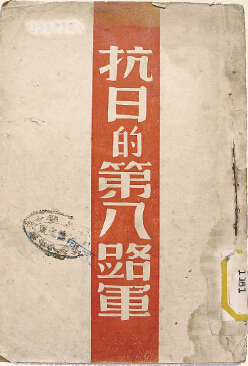 抗日的第八路軍
1361